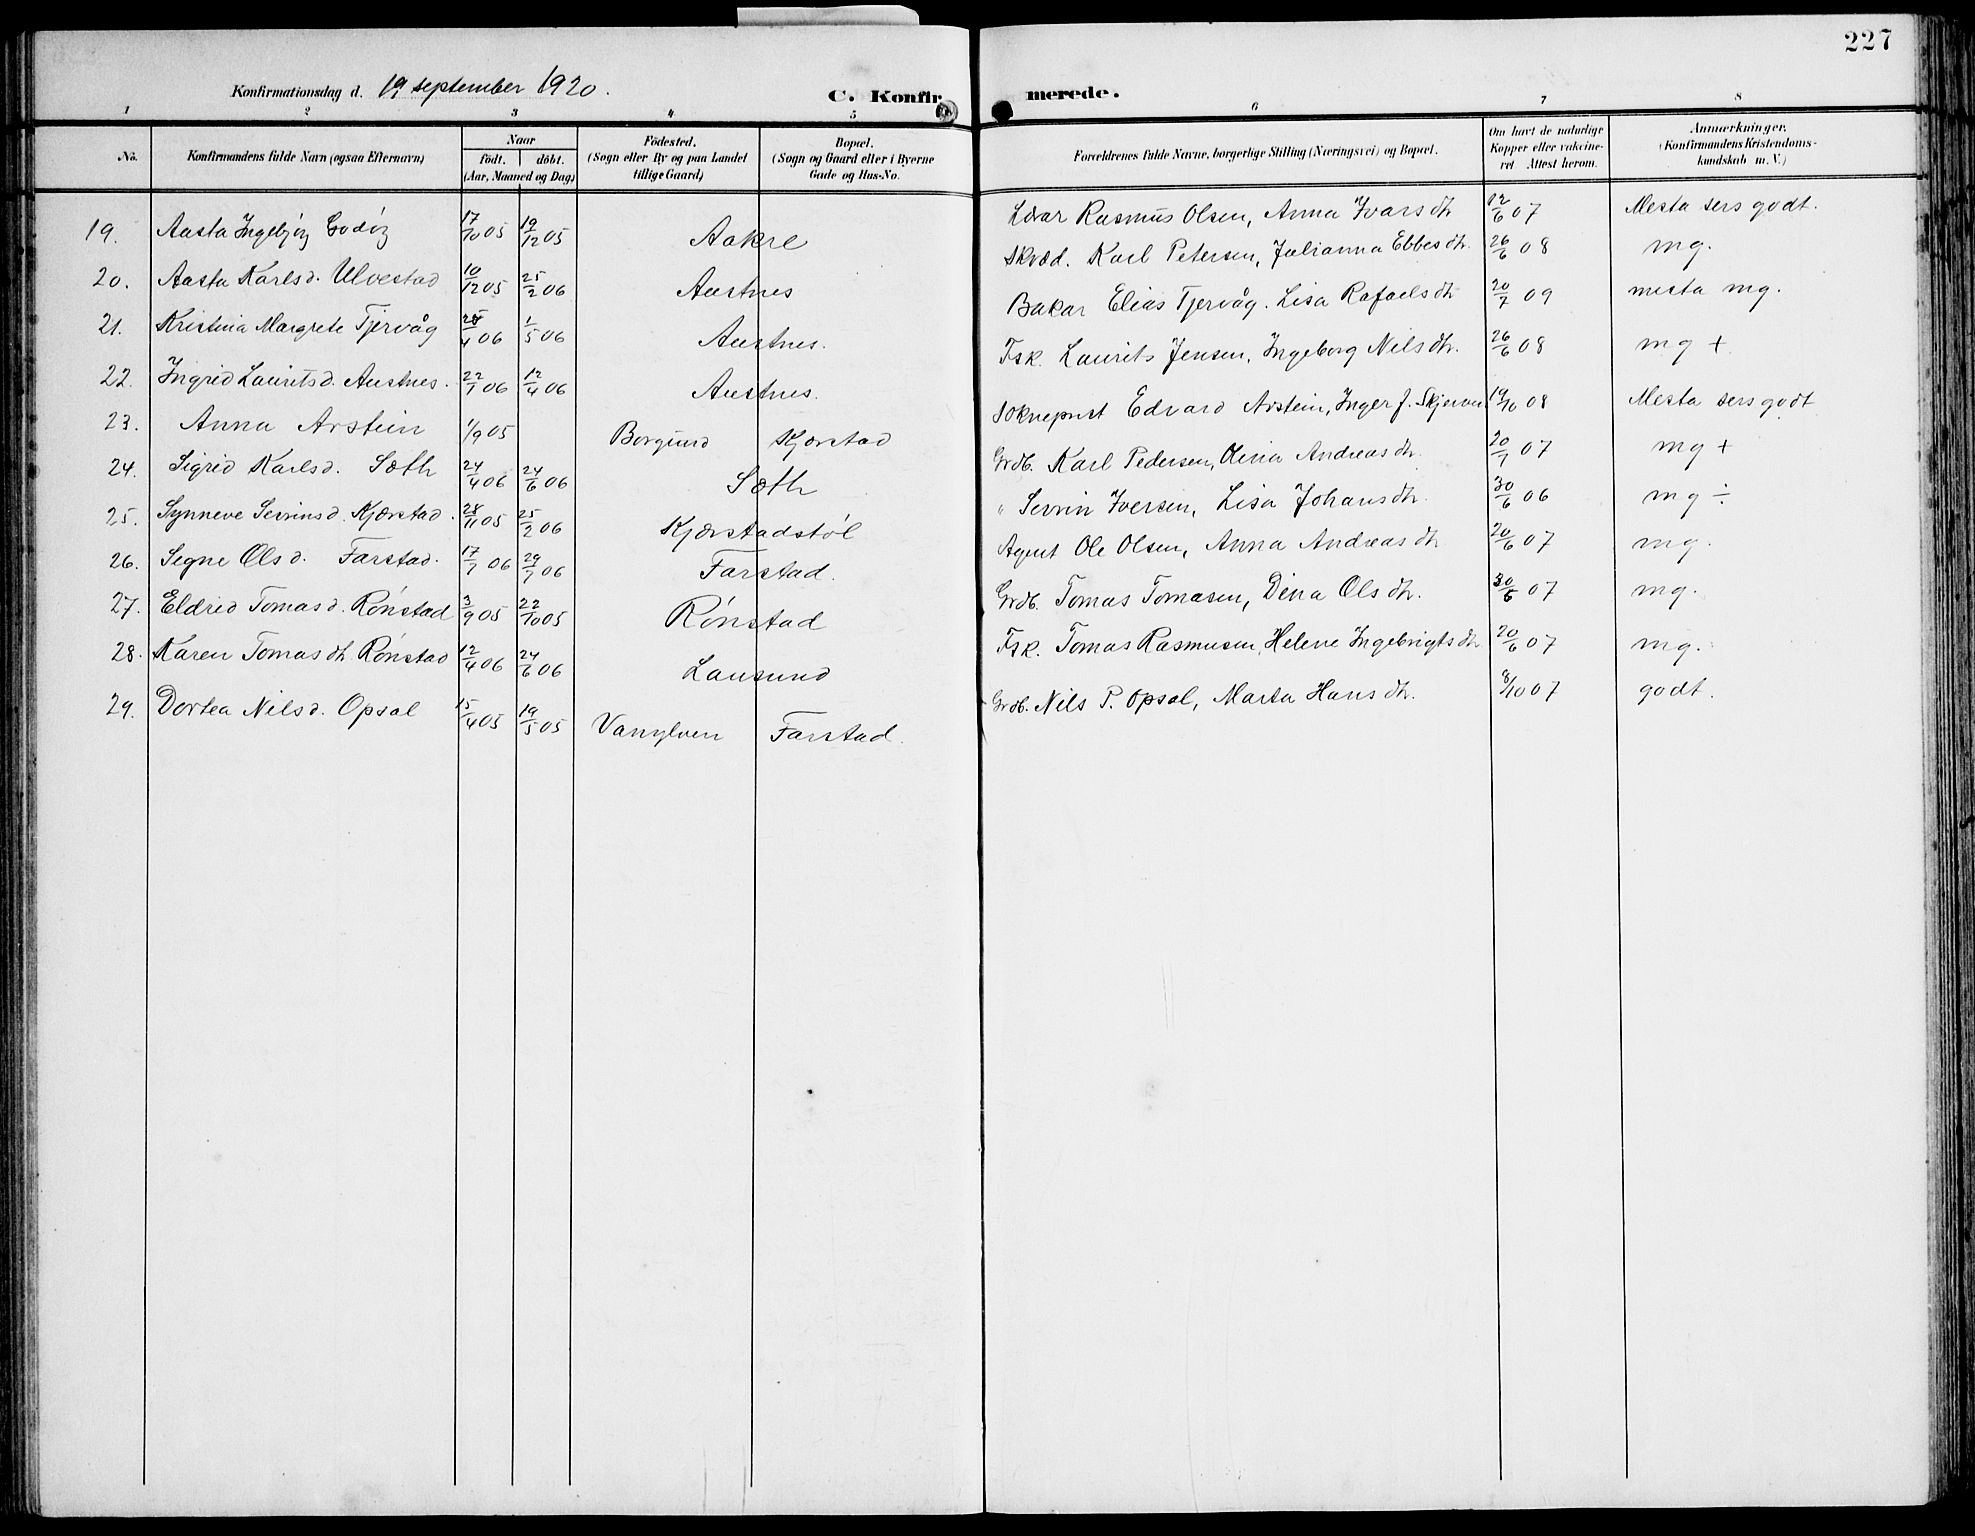 227
Konfirmationsdag d. 19 september 1920.
C. Konfirmerede.
1 2 3 4 5 6 7 8
No. Konfirmandens fulde Navn (ogsaa Efternavn) Naar født. döbt. (Aar, Maaned og Dag) Födested. (Sogn eller By og paa Landet tillige Gaard) Bopæl. (Sogn og Gaard eller i Byerne Gade og Hus-No. Forældrenes fulde Navne, borgerlige Stilling (Næringsvei) og Bopæl. Om havt de naturlige Kopper eller vakcineret Attest herom. Anmærkninger. (Konfirmandens Kristendomskundskab m. V.)
19. Aasta Ingebjörg Godöy 17/10 05 19/12 05 Aakre Lærar Rasmus Olsen, Anna Ivarsdtr 12/6 07 Mesta sers godt.
20. Aasta Karlsd. Ulvestad 10/12 05 25/2 06 Austnes Skræd. Karl Petersen, Julianna Ebbesdtr. 26/6 08 mg.
21. Kristina Margrete Tjervåg 25/4 06 1/5 06 Austnes. Bakar Elias Tjervåg. Lisa Rafaelsdtr 20/7 09 mesta mg.
22. Ingrid Lauritsd. Austnes. 22/1 06 12/4 06 Austnes. Fsk. Laurits Jensen, Ingeborg Nilsdtr. 26/6 08 mg +
23. Anna Arstein 1/9 05 Borgund Kjærstad Sokneprest Edvard Arstein, Inger J. 19/10 08 Mesta sers godt
24. Sigrid Karlsd. Sæth 24/4 06 24/6 06 Sæth Grdb. Karl Pedersen, Olina Andreasdtr. 20/7 07 mg +
25. Synneve Sevrinsd. Kjærstad. 28/11 05 25/2 06 Kjærstadstøl " Sevrin Iversen, Lisa Johansdtr. 30/6 06 mg ÷
26. Segne Olsd. Farstad. 17/7 06 29/7 06 Farstad. Agent Ole Olsen, Anna Andreasdtr 20/6 07 mg.
27. Eldrid Tomasd. Rónstad 3/9 05 22/10 05 Rónstad Grdb. Tomas Tomasen, Dina Olsdtr. 30/6 07 mg.
28. Karen Tomasdtr. Rónstad 12/4 06 24/6 06 Lausund Fsk. Tomas Rasmusen, Helene Ingebrigtsdtr 20/6 07 mg.
29. Dortea Nilsd. Opsal 15/4 05 19/5 05 Vanylven Farstad. Grdb. Nils P. Opsal, Marta Hansdtr. 8/10 07 godt.